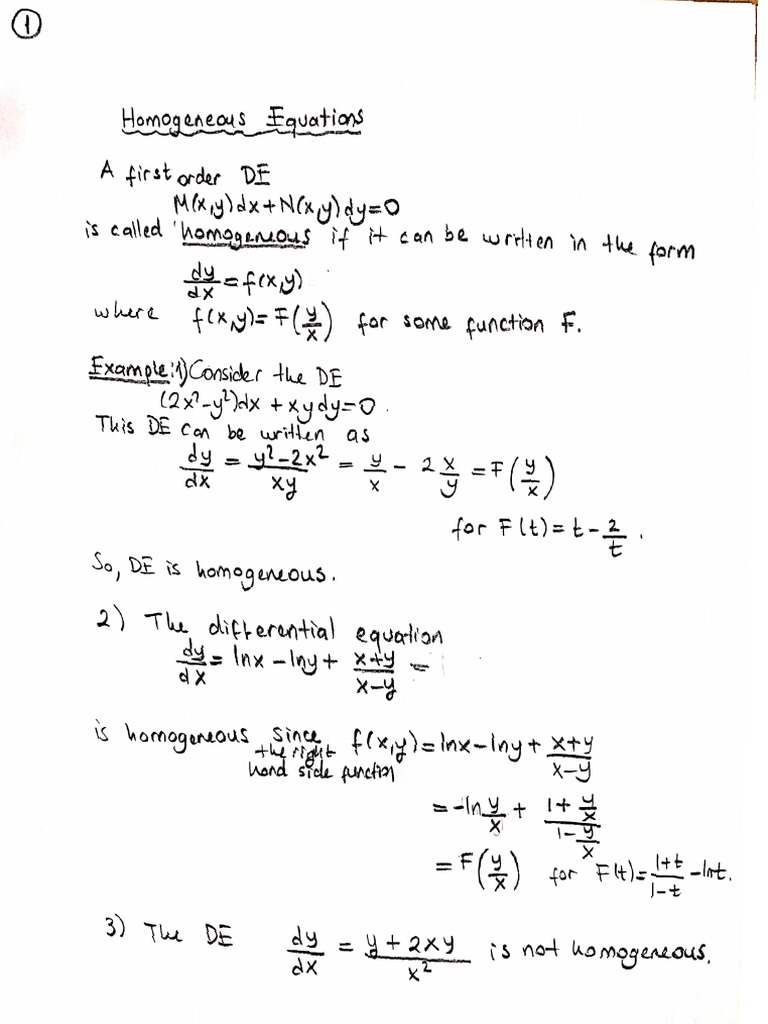 1
Homogeneous Equations
A first order DE
M(x,y)dx+N(x,y)dy=0
is called homogeneous if it can be written in the form
dy/dx = f(x,y)
where f(x,y)=F(y/x) for some function F.
Example:1) Consider the DE
(2x²-y²)dx + xydy=0.
This DE can be written as
dy/dx = (y²-2x²)/xy = y/x - 2 x/y = F(y/x)
for F(t)=t-2/t.
So, DE is homogeneous.
2) The differential equation
dy/dx = lnx-lny+ (x+y)/(x-y) =
is homogeneous since the right hand side function f(x,y)=lnx-lny+ (x+y)/(x-y)
= -ln y/x + (1+y/x)/(1-y/x)
= F(y/x) for F(t)= (1+t)/(1-t) -lnt.
3) The DE dy/dx = (y+2xy)/x² is not homogeneous.